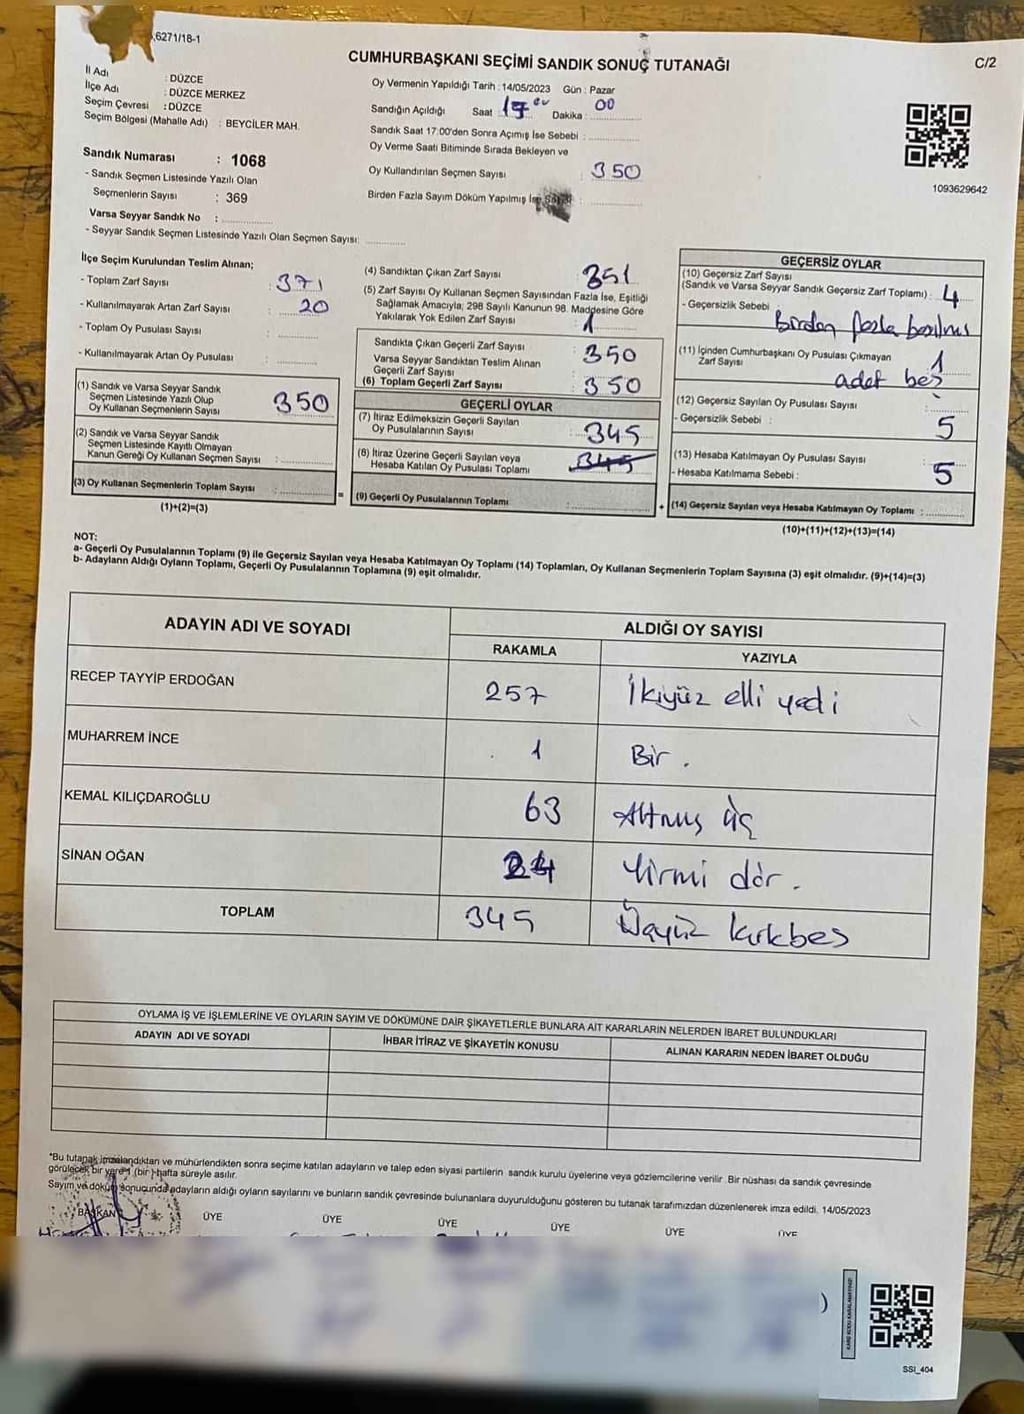 6271/18-1
CUMHURBAŞKANI SEÇİMİ SANDIK SONUÇ TUTANAĞI
C/2
İl Adı : DÜZCE
İlçe Adı : DÜZCE MERKEZ
Seçim Çevresi : DÜZCE
Seçim Bölgesi (Mahalle Adı) : BEYCİLER MAH.
Sandık Numarası : 1068
- Sandık Seçmen Listesinde Yazılı Olan
Seçmenlerin Sayısı : 369
Varsa Seyyar Sandık No :
- Seyyar Sandık Seçmen Listesinde Yazılı Olan Seçmen Sayısı:
Oy Vermenin Yapıldığı Tarih : 14/05/2023 Gün : Pazar
Sandığın Açıldığı Saat : 17 Dakika : 00
Sandık Saat 17:00'den Sonra Açımış İse Sebebi :
Oy Verme Saati Bitiminde Sırada Bekleyen ve
Oy Kullandırılan Seçmen Sayısı : 350
Birden Fazla Sayım Döküm Yapılmış İse
1093629642
İlçe Seçim Kurulundan Teslim Alınan;
- Toplam Zarf Sayısı : 371
- Kullanılmayarak Artan Zarf Sayısı : 20
- Toplam Oy Pusulası Sayısı :
- Kullanılmayarak Artan Oy Pusulası :
(1) Sandık ve Varsa Seyyar Sandık
Seçmen Listesinde Yazılı Olup
Oy Kullanan Seçmenlerin Sayısı : 350
(2) Sandık ve Varsa Seyyar Sandık
Seçmen Listesinde Kayıtlı Olmayan
Kanun Gereği Oy Kullanan Seçmen Sayısı :
(3) Oy Kullanan Seçmenlerin Toplam Sayısı :
(1)+(2)=(3)
=
(4) Sandıktan Çıkan Zarf Sayısı : 351
(5) Zarf Sayısı Oy Kullanan Seçmen Sayısından Fazla İse, Eşitliği
Sağlamak Amacıyla; 298 Sayılı Kanunun 98. Maddesine Göre
Yakılarak Yok Edilen Zarf Sayısı : 1
Sandıkta Çıkan Geçerli Zarf Sayısı : 350
Varsa Seyyar Sandıktan Teslim Alınan
Geçerli Zarf Sayısı :
(6) Toplam Geçerli Zarf Sayısı : 350
GEÇERLİ OYLAR
(7) İtiraz Edilmeksizin Geçerli Sayılan
Oy Pusulalarının Sayısı : 345
(8) İtiraz Üzerine Geçerli Sayılan veya
Hesaba Katılan Oy Pusulası Toplamı : 345
(9) Geçerli Oy Pusulalarının Toplamı :
+
GEÇERSİZ OYLAR
(10) Geçersiz Zarf Sayısı
(Sandık ve Varsa Seyyar Sandık Geçersiz Zarf Toplamı) : 4
- Geçersizlik Sebebi :
Birden fazla basılmış
(11) İçinden Cumhurbaşkanı Oy Pusulası Çıkmayan
Zarf Sayısı : 1
adet beş
(12) Geçersiz Sayılan Oy Pusulası Sayısı :
- Geçersizlik Sebebi : 5
(13) Hesaba Katılmayan Oy Pusulası Sayısı :
- Hesaba Katılmama Sebebi : 5
(14) Geçersiz Sayılan veya Hesaba Katılmayan Oy Toplamı :
(10)+(11)+(12)+(13)=(14)
NOT:
a- Geçerli Oy Pusulalarının Toplamı (9) ile Geçersiz Sayılan veya Hesaba Katılmayan Oy Toplamı (14) Toplamları, Oy Kullanan Seçmenlerin Toplam Sayısına (3) eşit olmalıdır. (9)+(14)=(3)
b- Adayların Aldığı Oyların Toplamı, Geçerli Oy Pusulalarının Toplamına (9) eşit olmalıdır.
ADAYIN ADI VE SOYADI
ALDIĞI OY SAYISI
RAKAMLA YAZIYLA
RECEP TAYYİP ERDOĞAN 257 İkiyüz elli yedi
MUHARREM İNCE 1 Bir .
KEMAL KILIÇDAROĞLU 63 Altmış üç
SİNAN OĞAN 24 Yirmi dör .
TOPLAM 345 Üçyüz kırkbes
OYLAMA İŞ VE İŞLEMLERİNE VE OYLARIN SAYIM VE DÖKÜMÜNE DAİR ŞİKAYETLERLE BUNLARA AİT KARARLARIN NELERDEN İBARET BULUNDUKLARI
ADAYIN ADI VE SOYADI İHBAR İTİRAZ VE ŞİKAYETİN KONUSU ALINAN KARARIN NEDEN İBARET OLDUĞU
"Bu tutanak imzalandıktan ve mühürlendikten sonra seçime katılan adayların ve talep eden siyasi partilerin sandık kurulu üyelerine veya gözlemcilerine verilir. Bir nüshası da sandık çevresinde
görülecek bir yere 1 (bir) hafta süreyle asılır.
Sayım ve döküm sonucunda adayların aldığı oyların sayılarını ve bunların sandık çevresinde bulunanlara duyurulduğunu gösteren bu tutanak tarafımızdan düzenlenerek imza edildi. 14/05/2023
BAŞKAN ÜYE ÜYE ÜYE ÜYE ÜYE ÜYE
)
SSI_404